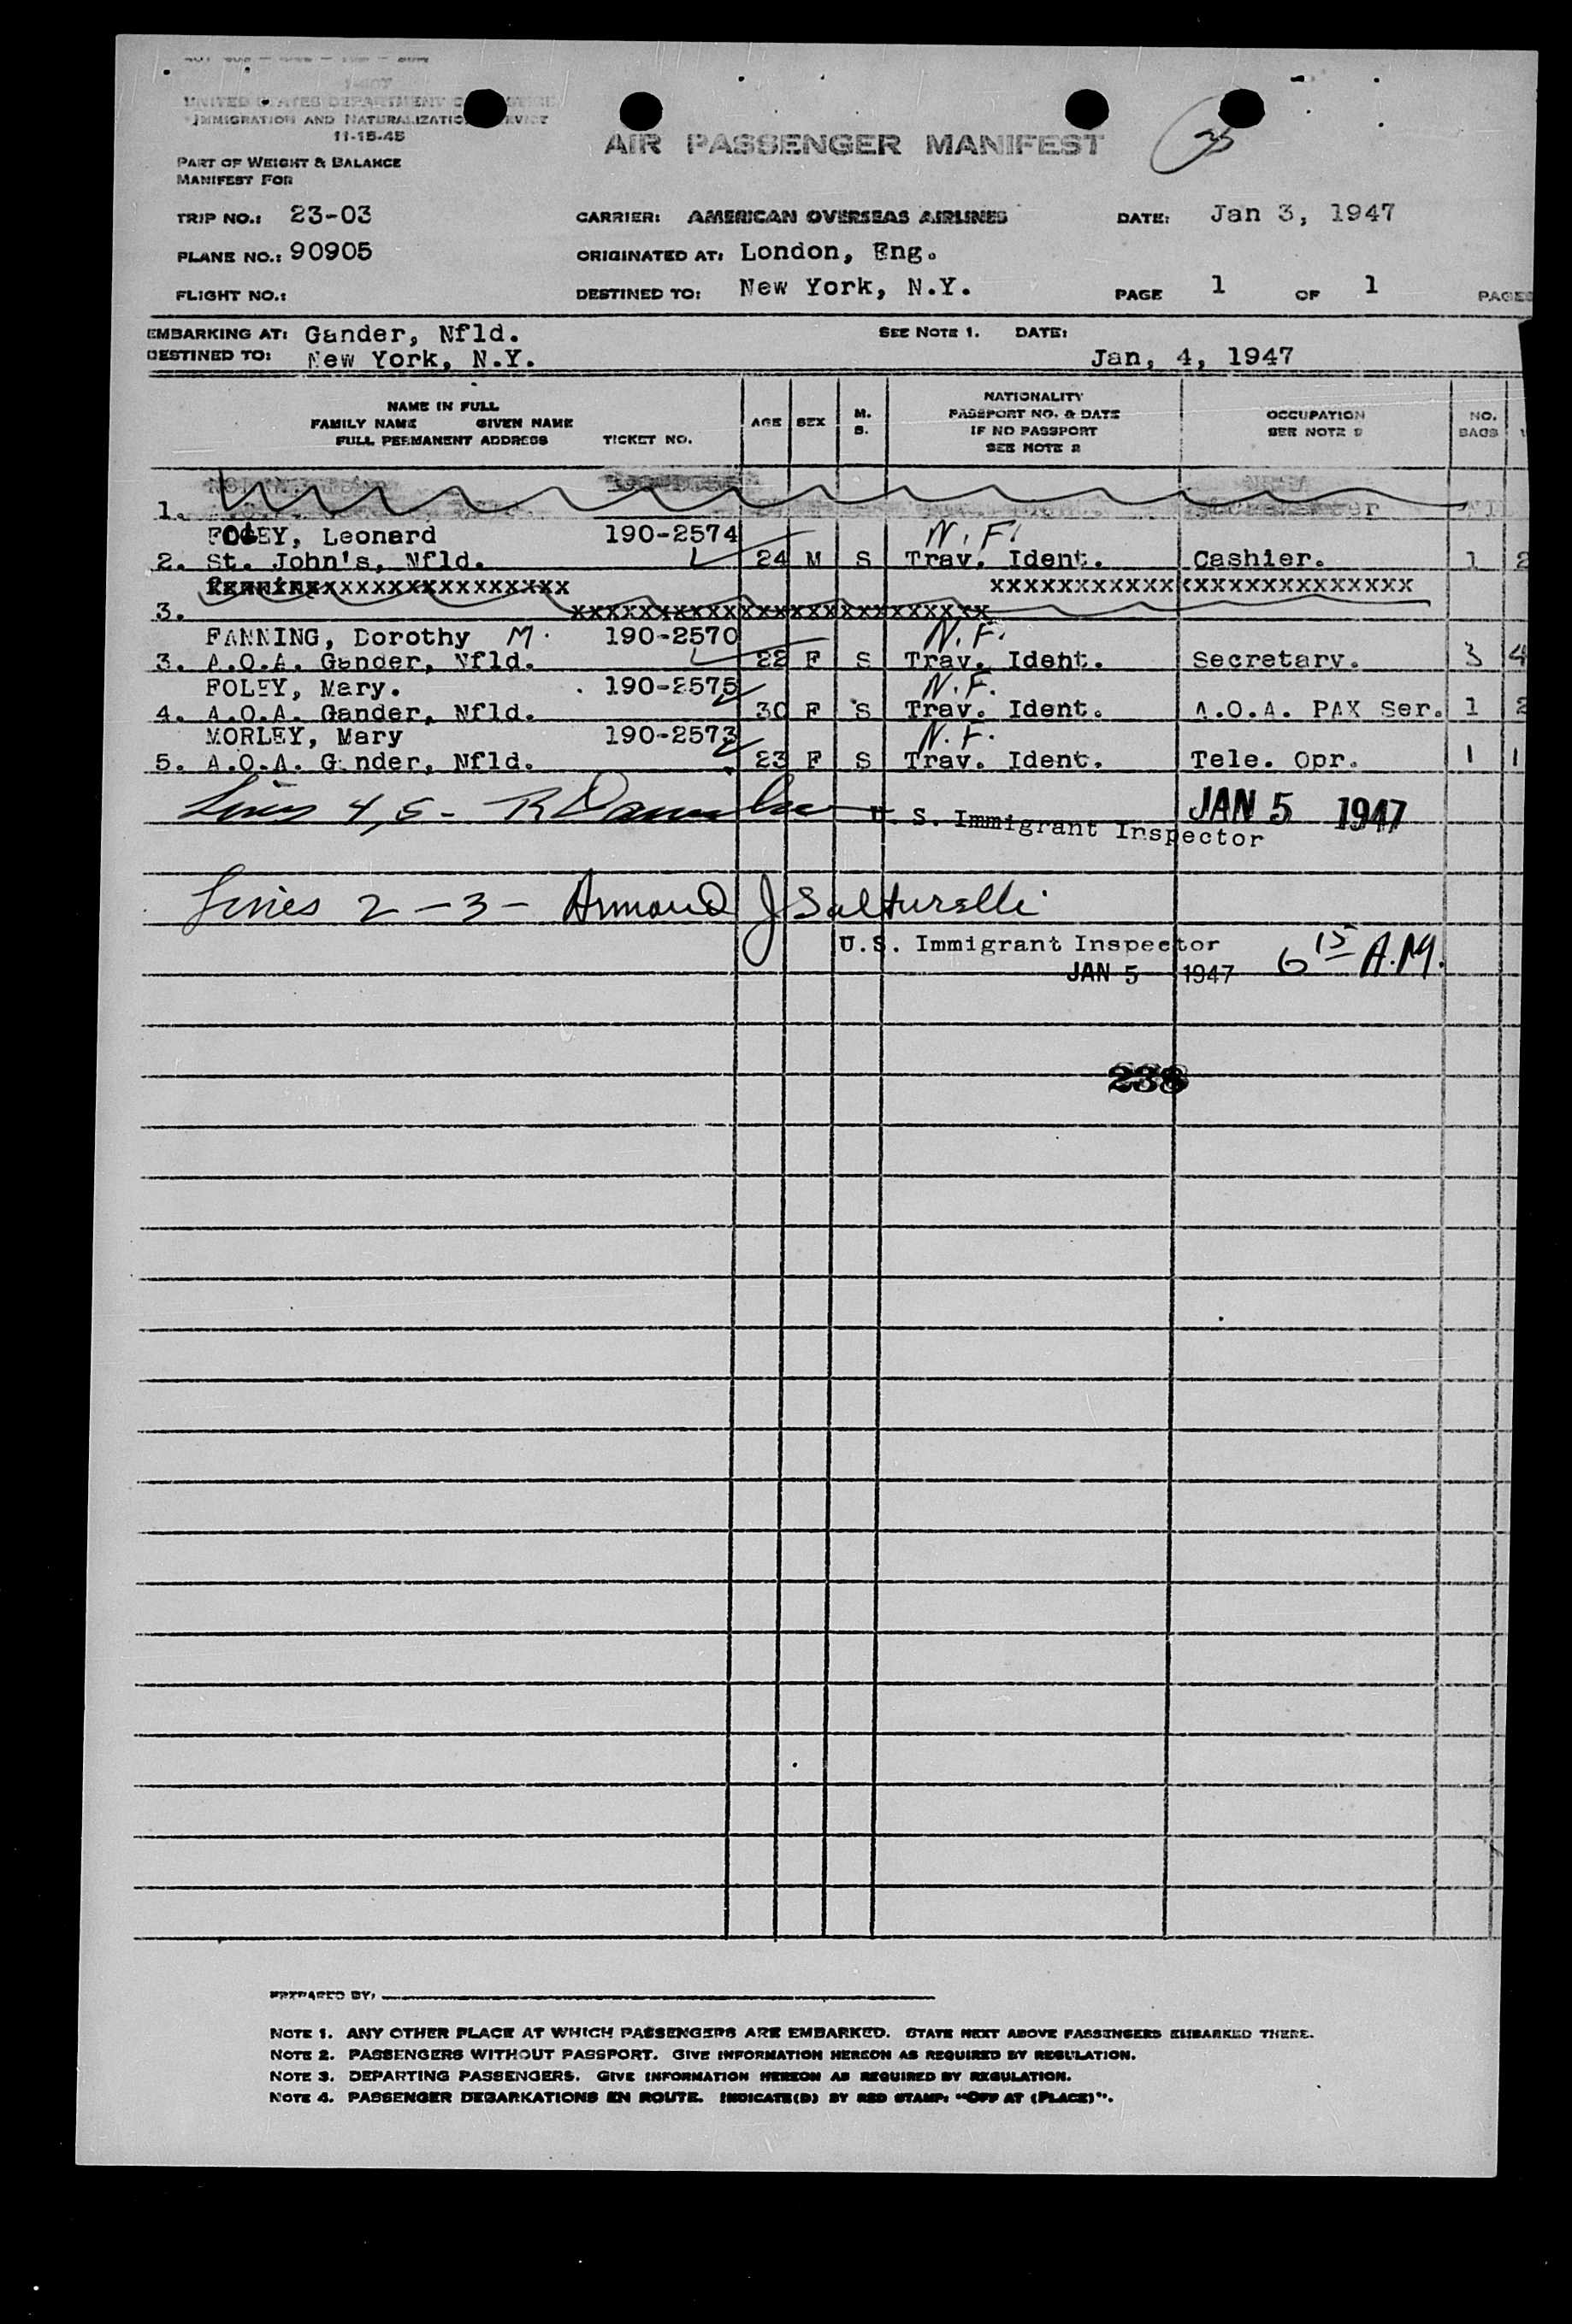 UNITED STATES DEPARTMENT OF JUSTICE
IMMIGRATION AND NATURALIZATION SERVICE
11-15-45
AIR PASSENGER MANIFEST
PART OF WEIGHT & BALANCE
MANIFEST FOR
TRIP NO.: 23-03 CARRIER: AMERICAN OVERSEAS AIRLINES DATE: Jan 3, 1947
PLANE NO.: 90905 ORIGINATED AT: London, Eng.
FLIGHT NO.: DESTINED TO: New York, N.Y. PAGE 1 OF 1 PAGES
EMBARKING AT: Gander, Nfld. SEE NOTE 1. DATE:
DESTINED TO: New York, N.Y. Jan, 4, 1947
NAME IN FULL
FAMILY NAME GIVEN NAME
FULL PERMANENT ADDRESS TICKET NO. AGE SEX M. S. NATIONALITY PASSPORT NO. & DATE IF NO PASSPORT SEE NOTE 2 OCCUPATION SEE NOTE 3 NO. BAGS
1.
FOLEY, Leonard 190-2574 N.F.
2. St. John's, Nfld. 24 M S Trav. Ident. Cashier. 1 2
xxxxxxxxxxxxxxxxxxxxxx xxxxxxxxxxxxxxxxxxxxxxxxx
3. xxxxxxxxxxxxxxxxxxxxxxxxx
FANNING, Dorothy M. 190-2570 N.F.
3. A.O.A. Gander, Nfld. 22 F S Trav. Ident. Secretary. 3 4
FOLEY, Mary. 190-2575 N.F.
4. A.O.A. Gander, Nfld. 30 F S Trav. Ident. A.O.A. PAX Ser. 1 2
MORLEY, Mary 190-2573 N.F.
5. A.O.A. Gander, Nfld. 23 F S Trav. Ident. Tele. Opr. 1 1
Lines 4, 5 - R JAN 5 1947
U. S. Immigrant Inspector
Lines 2 - 3 - Armand J Salturelli
U.S. Immigrant Inspector
JAN 5 1947 6 15 A.M.
238
PREPARED BY:
NOTE 1. ANY OTHER PLACE AT WHICH PASSENGERS ARE EMBARKED. STATE NEXT ABOVE PASSENGERS EMBARKED THERE.
NOTE 2. PASSENGERS WITHOUT PASSPORT. GIVE INFORMATION HEREON AS REQUIRED BY REGULATION.
NOTE 3. DEPARTING PASSENGERS. GIVE INFORMATION HEREON AS REQUIRED BY REGULATION.
NOTE 4. PASSENGER DEBARKATIONS EN ROUTE. INDICATE(D) BY RED STAMP: "OFF AT (PLACE)".